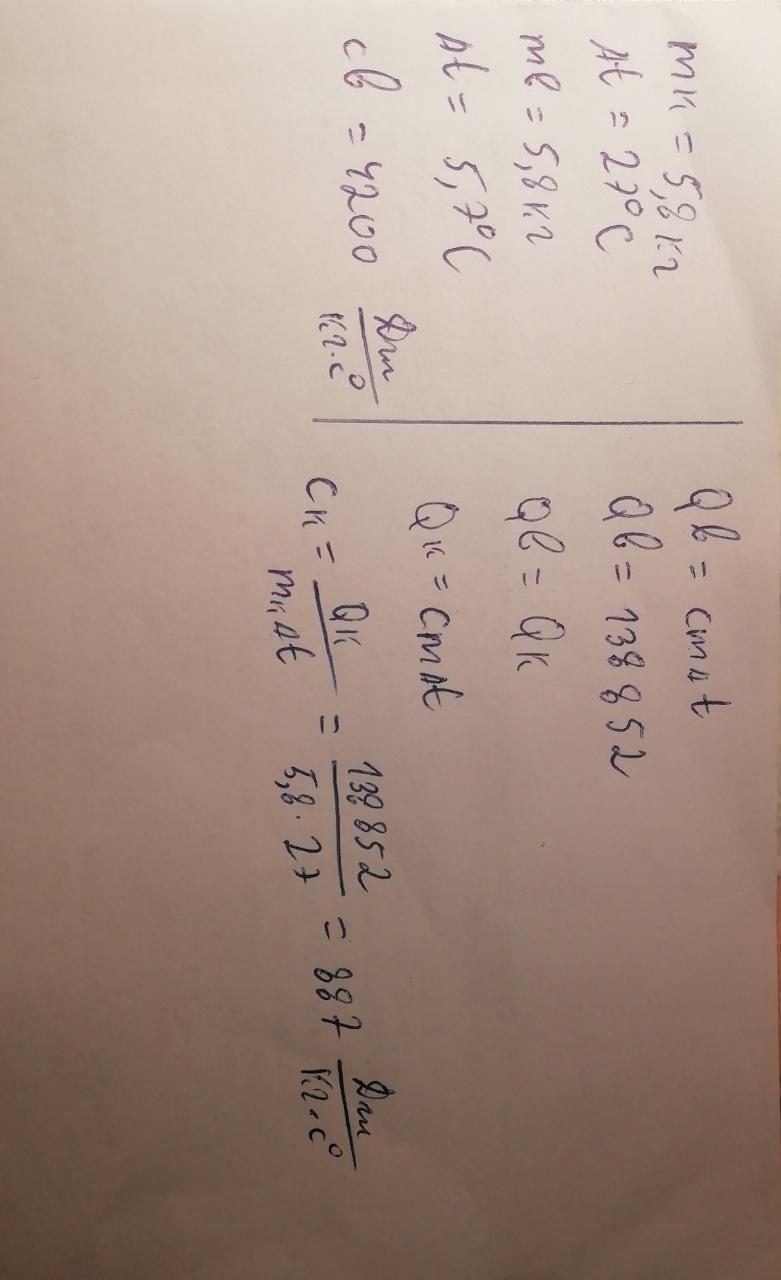 mк = 5,8 кг
Δt = 27°C
mв = 5,8 кг
Δt = 5,7°C
cв = 4200 Дж/кг·c°
Qв = cmΔt
Qв = 138852
Qв = Qк
Qк = cmΔt
cк = Qк/mкΔt = 138852/5,8·27 = 887 Дж/кг·c°